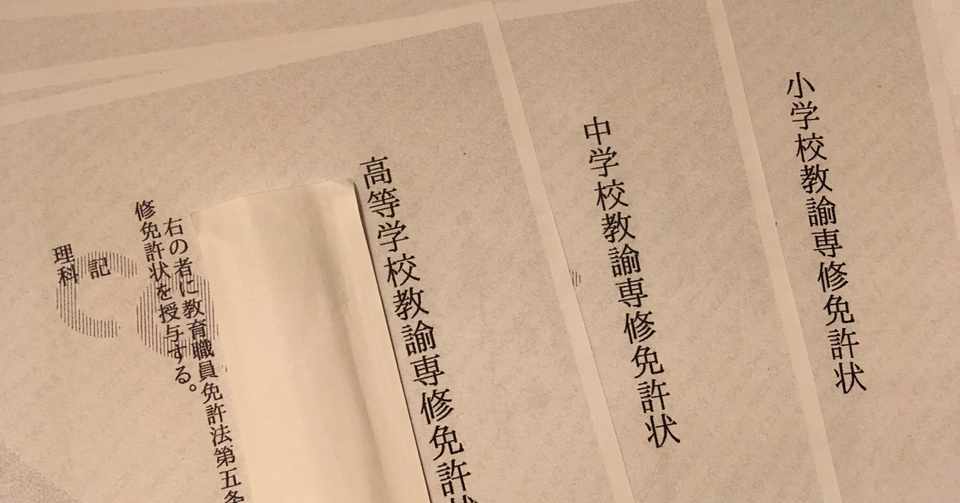 小学校教諭専修免許状
中学校教諭専修免許状
高等学校教諭専修免許状
右の者に教育職員免許法第五条
修免許状を授与する。
記
理科